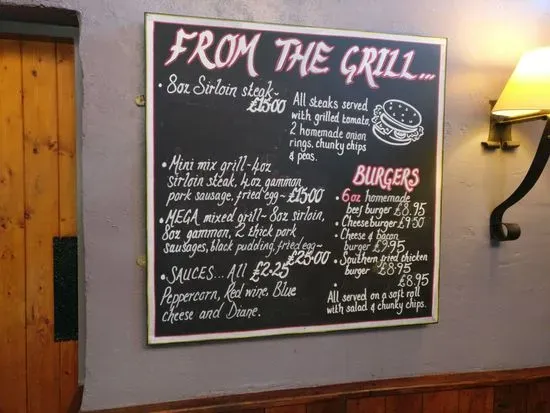 FROM THE GRILL...
• 8oz Sirloin steak~
£15.00
All steaks served
with grilled tomato,
2 homemade onion
rings, chunky chips
& peas.
• Mini mix grill~4oz
sirloin steak, 4oz gammon,
pork sausage, fried egg~ £15.00
• MEGA mixed grill~ 8oz sirloin,
8oz gammon, 2 thick pork
sausages, black pudding, fried egg~
£25.00
• SAUCES... All £2.25
Peppercorn, Red wine, Blue
cheese and Diane.
BURGERS
• 6oz homemade
beef burger £8.95
• Cheese burger £9.50
• Cheese & bacon
burger £9.95
• Southern fried chicken
burger £8.95
• £8.95
All served on a soft roll
with salad & chunky chips.